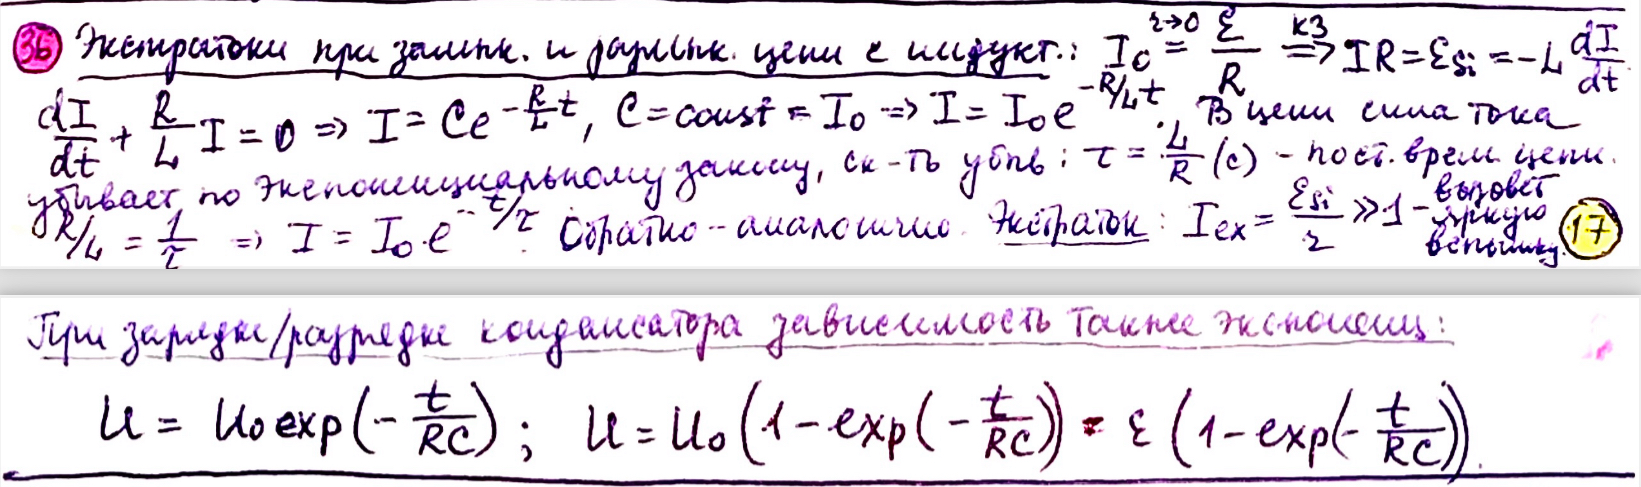 36 Экстратоки при замык. и размык. цепи с индукт.: I₀ =(r→0) ℰ/R ⇒(КЗ) IR = ℰsi = -L dI/dt
dI/dt + R/L I = 0 => I = Ce^(-R/L t), C = const = I₀ => I = I₀e^(-R/L t). В цепи сила тока
убывает по экспоненциальному закону, ск-ть убыв: τ = L/R (с) - пост. врем. цепи.
R/L = 1/τ => I = I₀·e^(-t/τ). Обратно - аналогично. Экстраток: Iex = ℰsi/r >> 1 - вызовет яркую вспышку. 17
При зарядке/разрядке конденсатора зависимость также экспоненц:
U = U₀ exp(-t/RC); U = U₀(1-exp(-t/RC)) = ℰ(1-exp(-t/RC)).